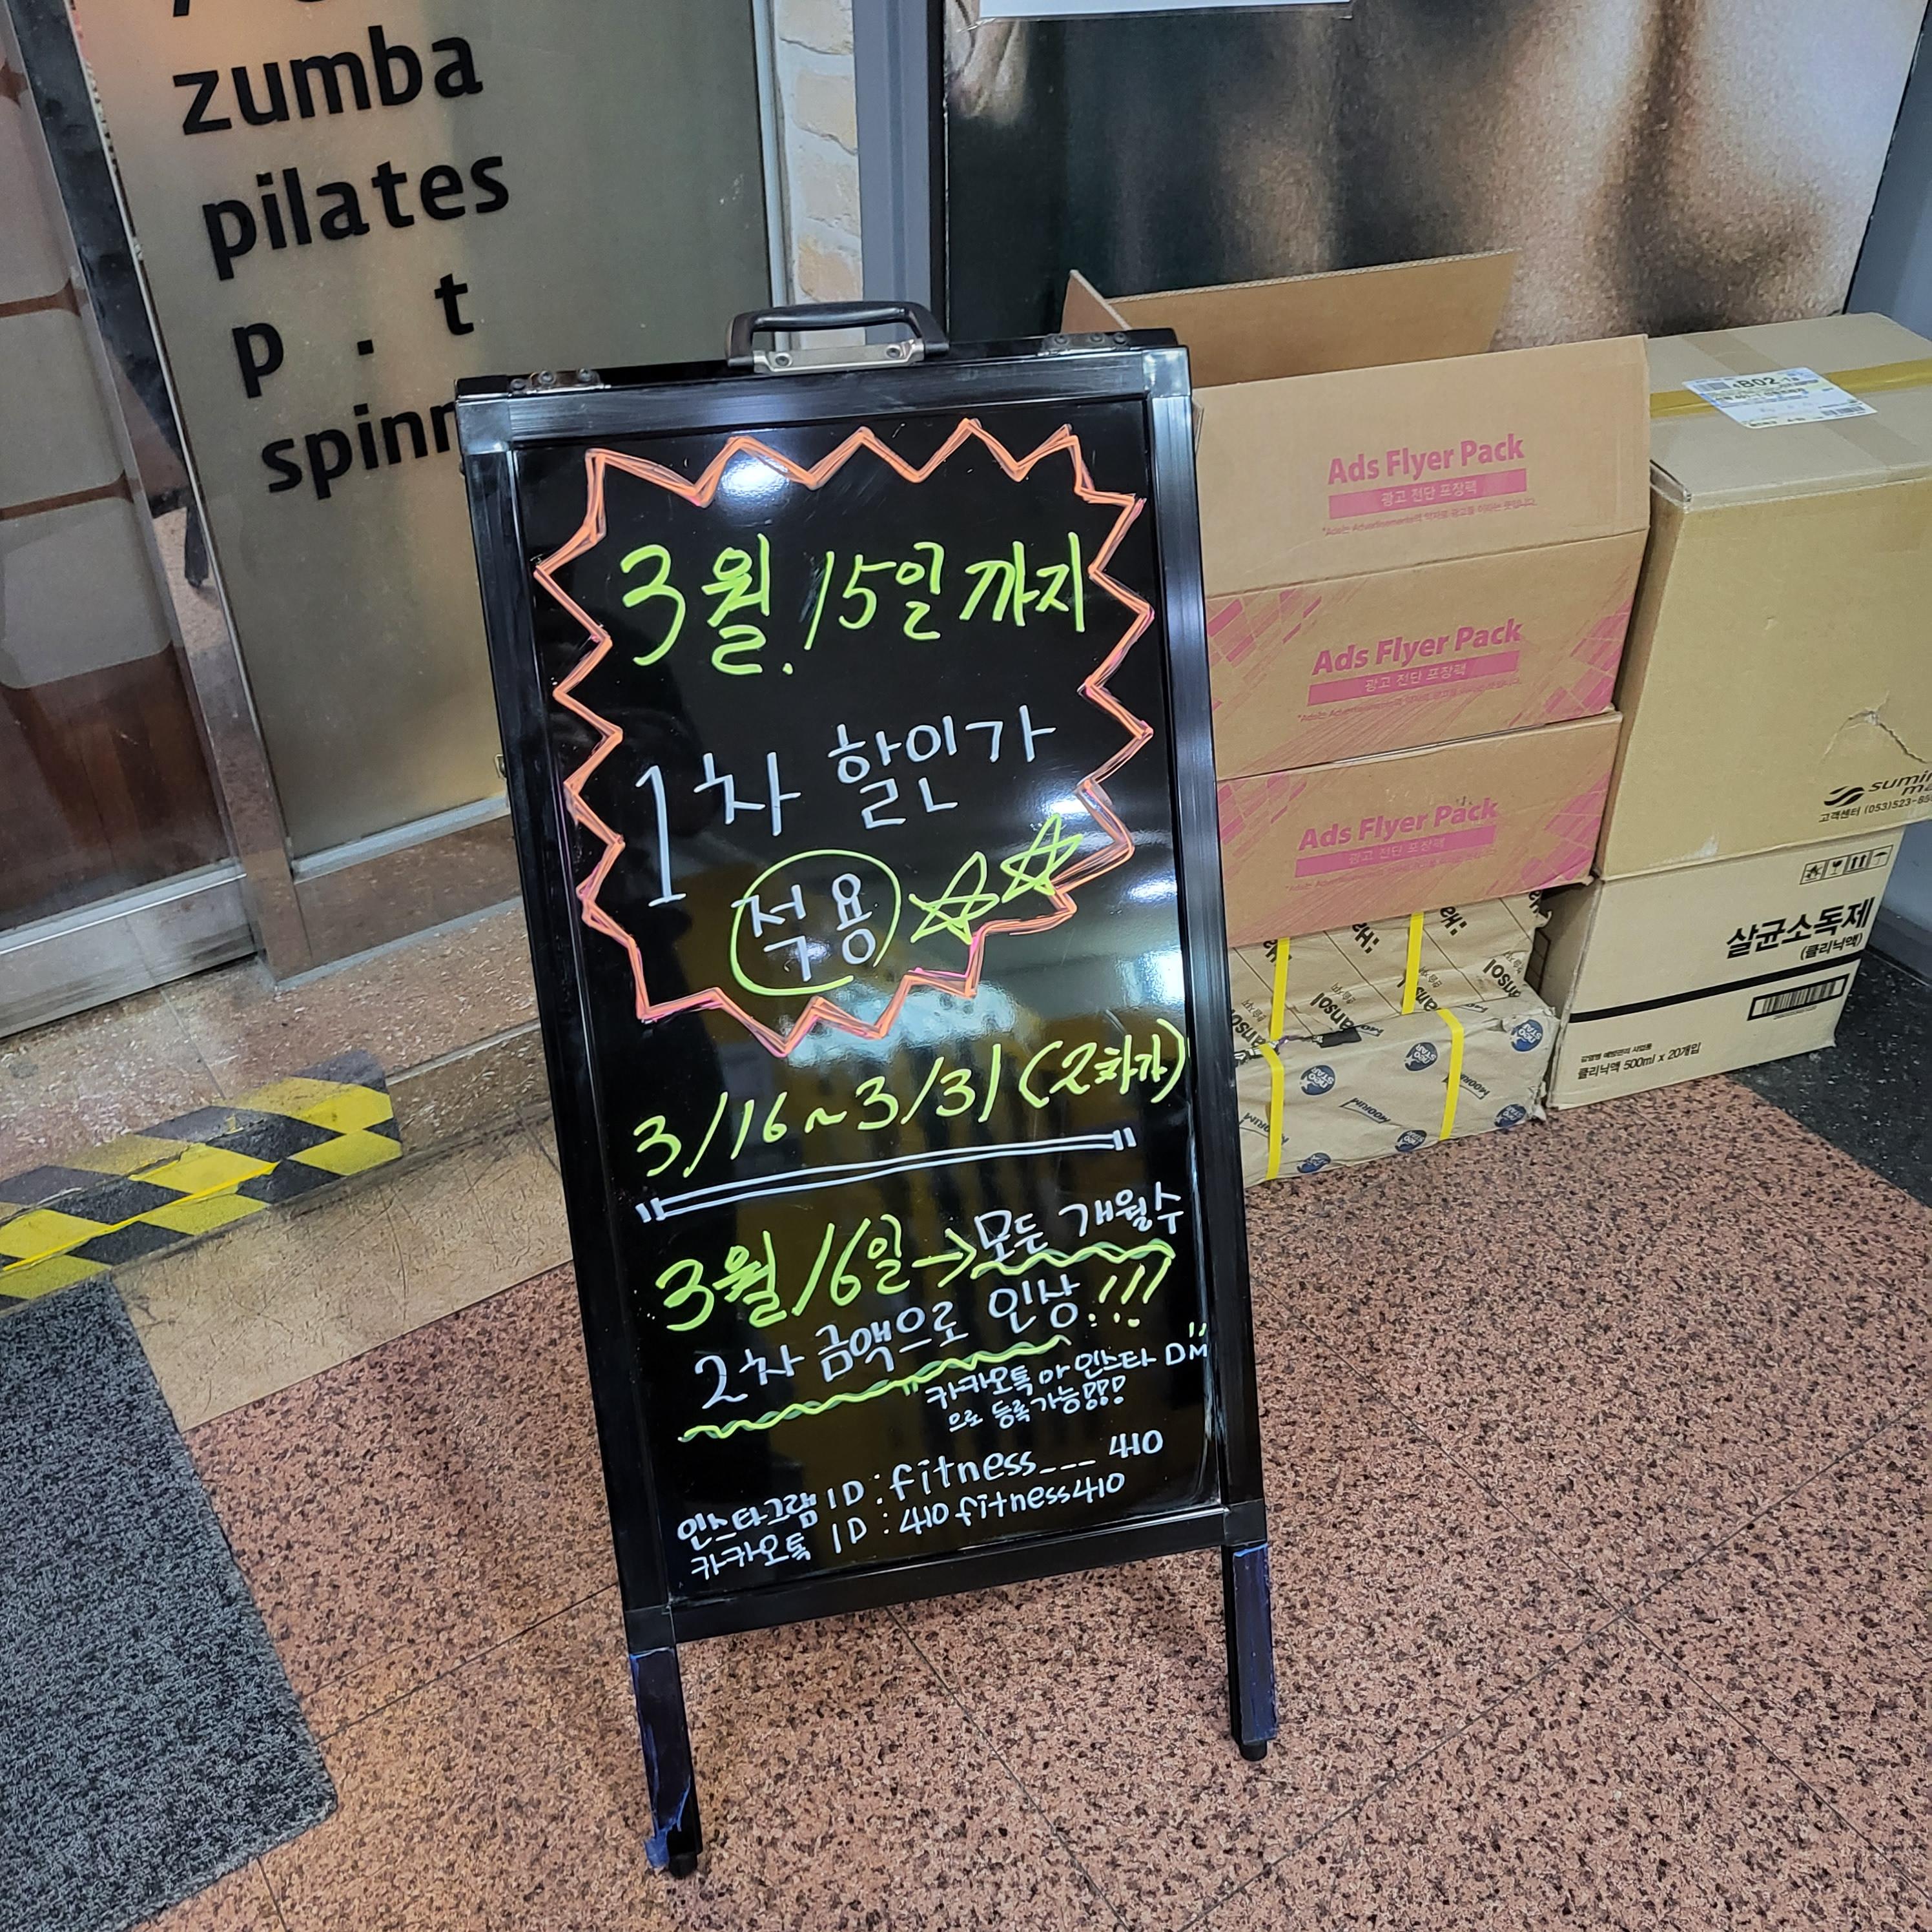 zumba
pilates
p . t
spinn
3월.15일까지
1차 할인가
적용
3/16~3/31(2차가)
3월16일→모든 개월수
2차 금액으로 인상!!!
카카오톡 이 인스타 DM
으로 등록가능!!!
인스타그램 ID : fitness___410
카카오톡 ID : 410fitness410
Ads Flyer Pack
광고 전단 포장팩
Ads Flyer Pack
광고 전단 포장팩
Ads Flyer Pack
광고 전단 포장팩
B02
고객센터 (053)523-
살균소독제
(클리닉액)
감염병 예방관리 사업용
클리닉액 500ml x 20개입
MOORIM
NEO STAR